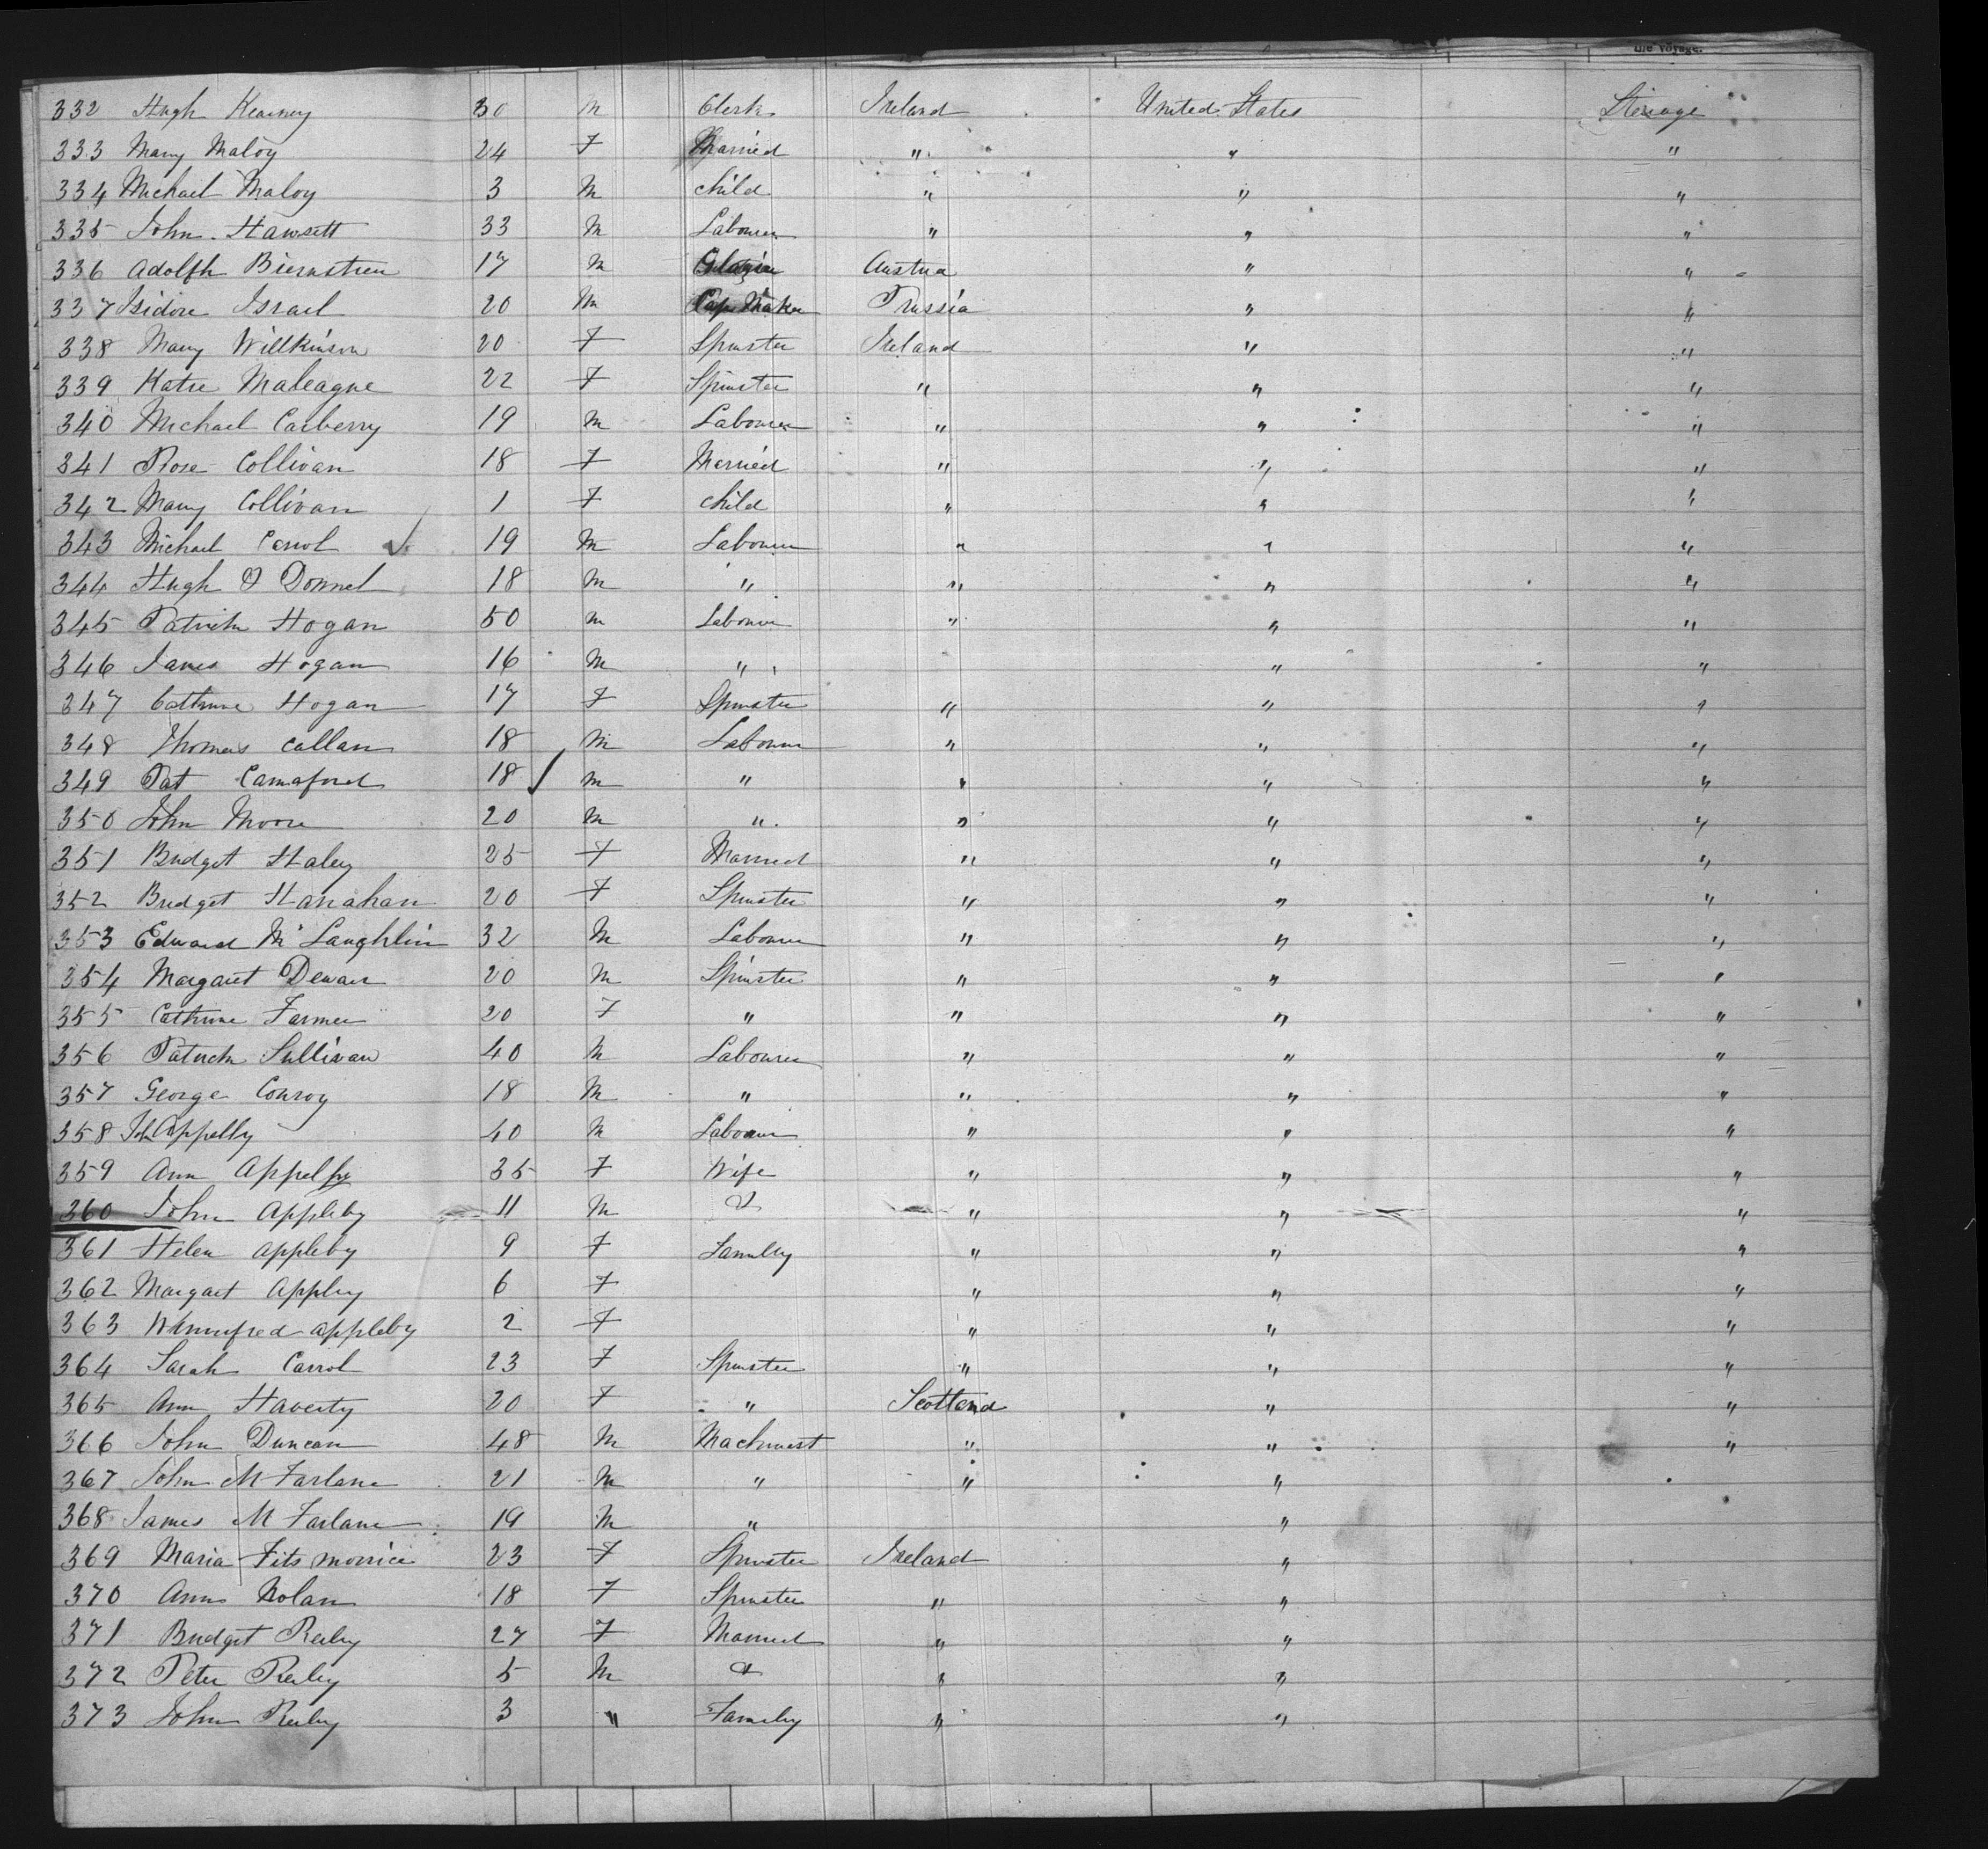 the voyage.
332 Hugh Kearney 30 M Clerk Ireland United States Steerage
333 Mary Maloy 24 F Married " " "
334 Michael Maloy 3 M child " " "
335 John Hawsett 33 M Labourer " " "
336 Adolph 17 M Austria " "
337 Isidore Israel 20 M Cap Maker Prussia " "
338 Mary Willkinson 20 F Spinster Ireland " "
339 Katie 22 F Spinster " " "
340 Michael Carberry 19 M Labourer " " "
341 Rose Collivan 18 F Married " " "
342 Mary Collivan 1 F child " " "
343 Michael Carrol 19 M Labourer " " "
344 Hugh O Donnel 18 M " " " "
345 Patrick Hogan 50 M Labourer " " "
346 James Hogan 16 M " " "
347 Cathrine Hogan 17 F Spinster " " "
348 Thomas Callan 18 M Labourer " " "
349 Pat 18 M " " " "
350 John Moore 20 M " " " "
351 Bridget Haley 25 F Married " " "
352 Bridget Hanahan 20 F Spinster " " "
353 Edward Mc Laughlin 32 M Labourer " " "
354 Margaret Dewan 20 M Spinster " " "
355 Cathrine Farmer 20 F " " " "
356 Patrick Sullivan 40 M Labourer " " "
357 George Conroy 18 M " " " "
358 Joh Appelby 40 M Labourer " " "
359 Ann Appelby 35 F Wife " " "
360 John Appleby 11 M & " " "
361 Helen Appleby 9 F Family " " "
362 Margaret Appleby 6 F " " "
363 Winnifred Appleby 2 F " " "
364 Sarah Carrol 23 F Spinster " " "
365 Ann Haverty 20 F " Scotland " "
366 John Duncan 48 M Machinest " " "
367 John M Farlane 21 M " " "
368 James M Farlane 19 M " "
369 Maria Fitsmorrice 23 F Spinster Ireland "
370 Ann Nolan 18 F Spinster " "
371 Bridget Reiley 27 F Married " "
372 Peter Reiley 5 M & " "
373 John Reiley 3 " Family " "